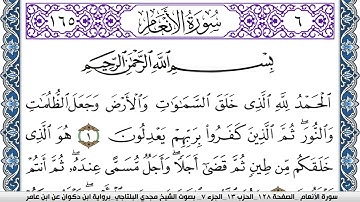 ٦ سُورَةُ الأَنعَام ١٦٥
بِسْمِ اللَّهِ الرَّحْمَٰنِ الرَّحِيمِ
الْحَمْدُ لِلَّهِ الَّذِي خَلَقَ السَّمَاوَاتِ وَالْأَرْضَ وَجَعَلَ الظُّلُمَاتِ
وَالنُّورَ ثُمَّ الَّذِينَ كَفَرُوا بِرَبِّهِمْ يَعْدِلُونَ ١ هُوَ الَّذِي
خَلَقَكُم مِّن طِينٍ ثُمَّ قَضَىٰ أَجَلًا وَأَجَلٌ مُّسَمًّى عِندَهُ ثُمَّ أَنتُمْ
سورة الأنعام _ الصفحة ١٢٨ _ الحزب ١٣ _ الجزء ٧ _ بصوت الشيخ مجدي البلتاجي _ برواية ابن ذكوان عن ابن عامر